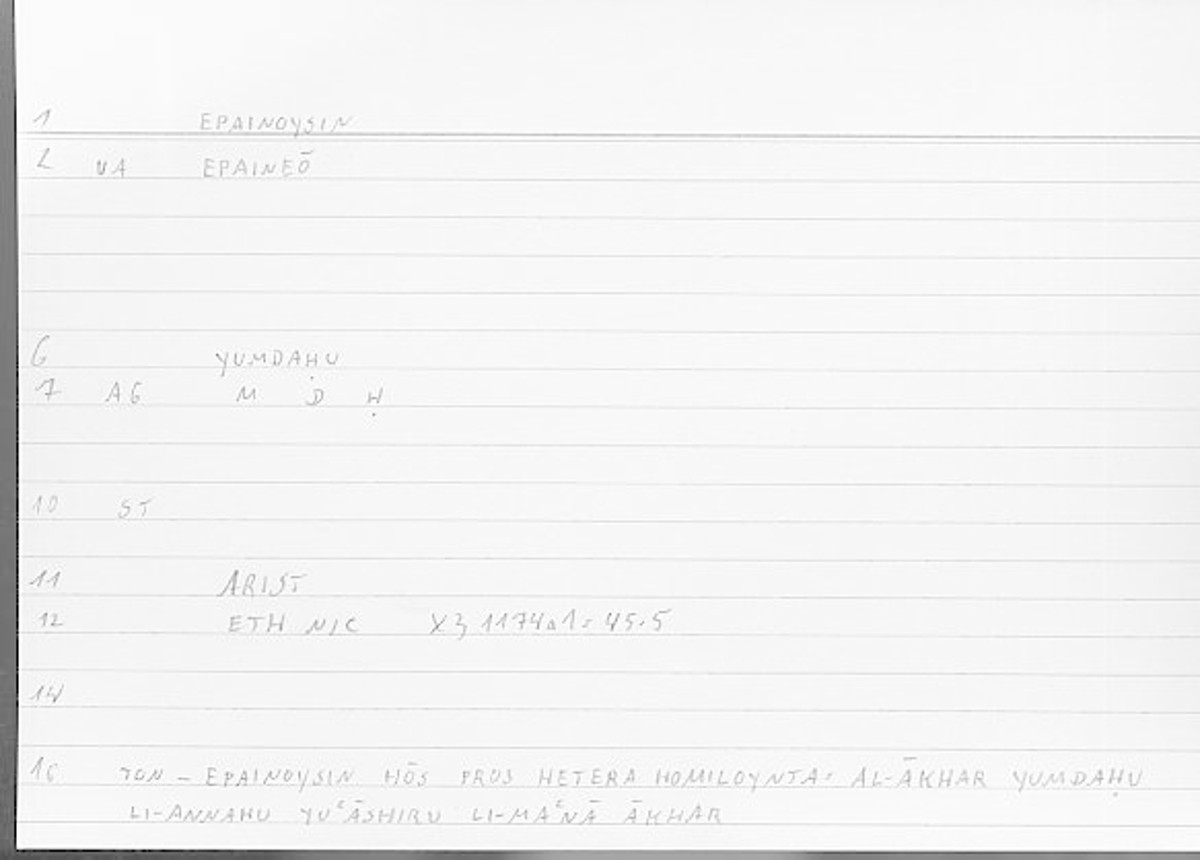 1 EPAINOYSIN
2 VA EPAINEŌ
6 YUMDAḤU
7 AG M D Ḥ
10 ST
11 ARIST
12 ETH NIC X3, 1174a1 = 45.5
14
16 TON – EPAINOYSIN HŌS PROS HETERA HOMILOYNTA = AL-ĀKHAR YUMDAḤU
LI-ANNAHU YUʿĀSHIRU LI-MAʿNĀ ĀKHAR